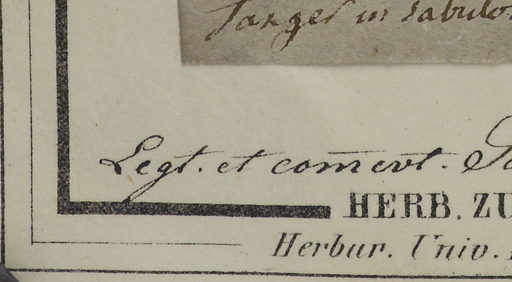 Tanger in sabulo
Legt. et com̅evt.
HERB. ZU
Herbar. Univ.